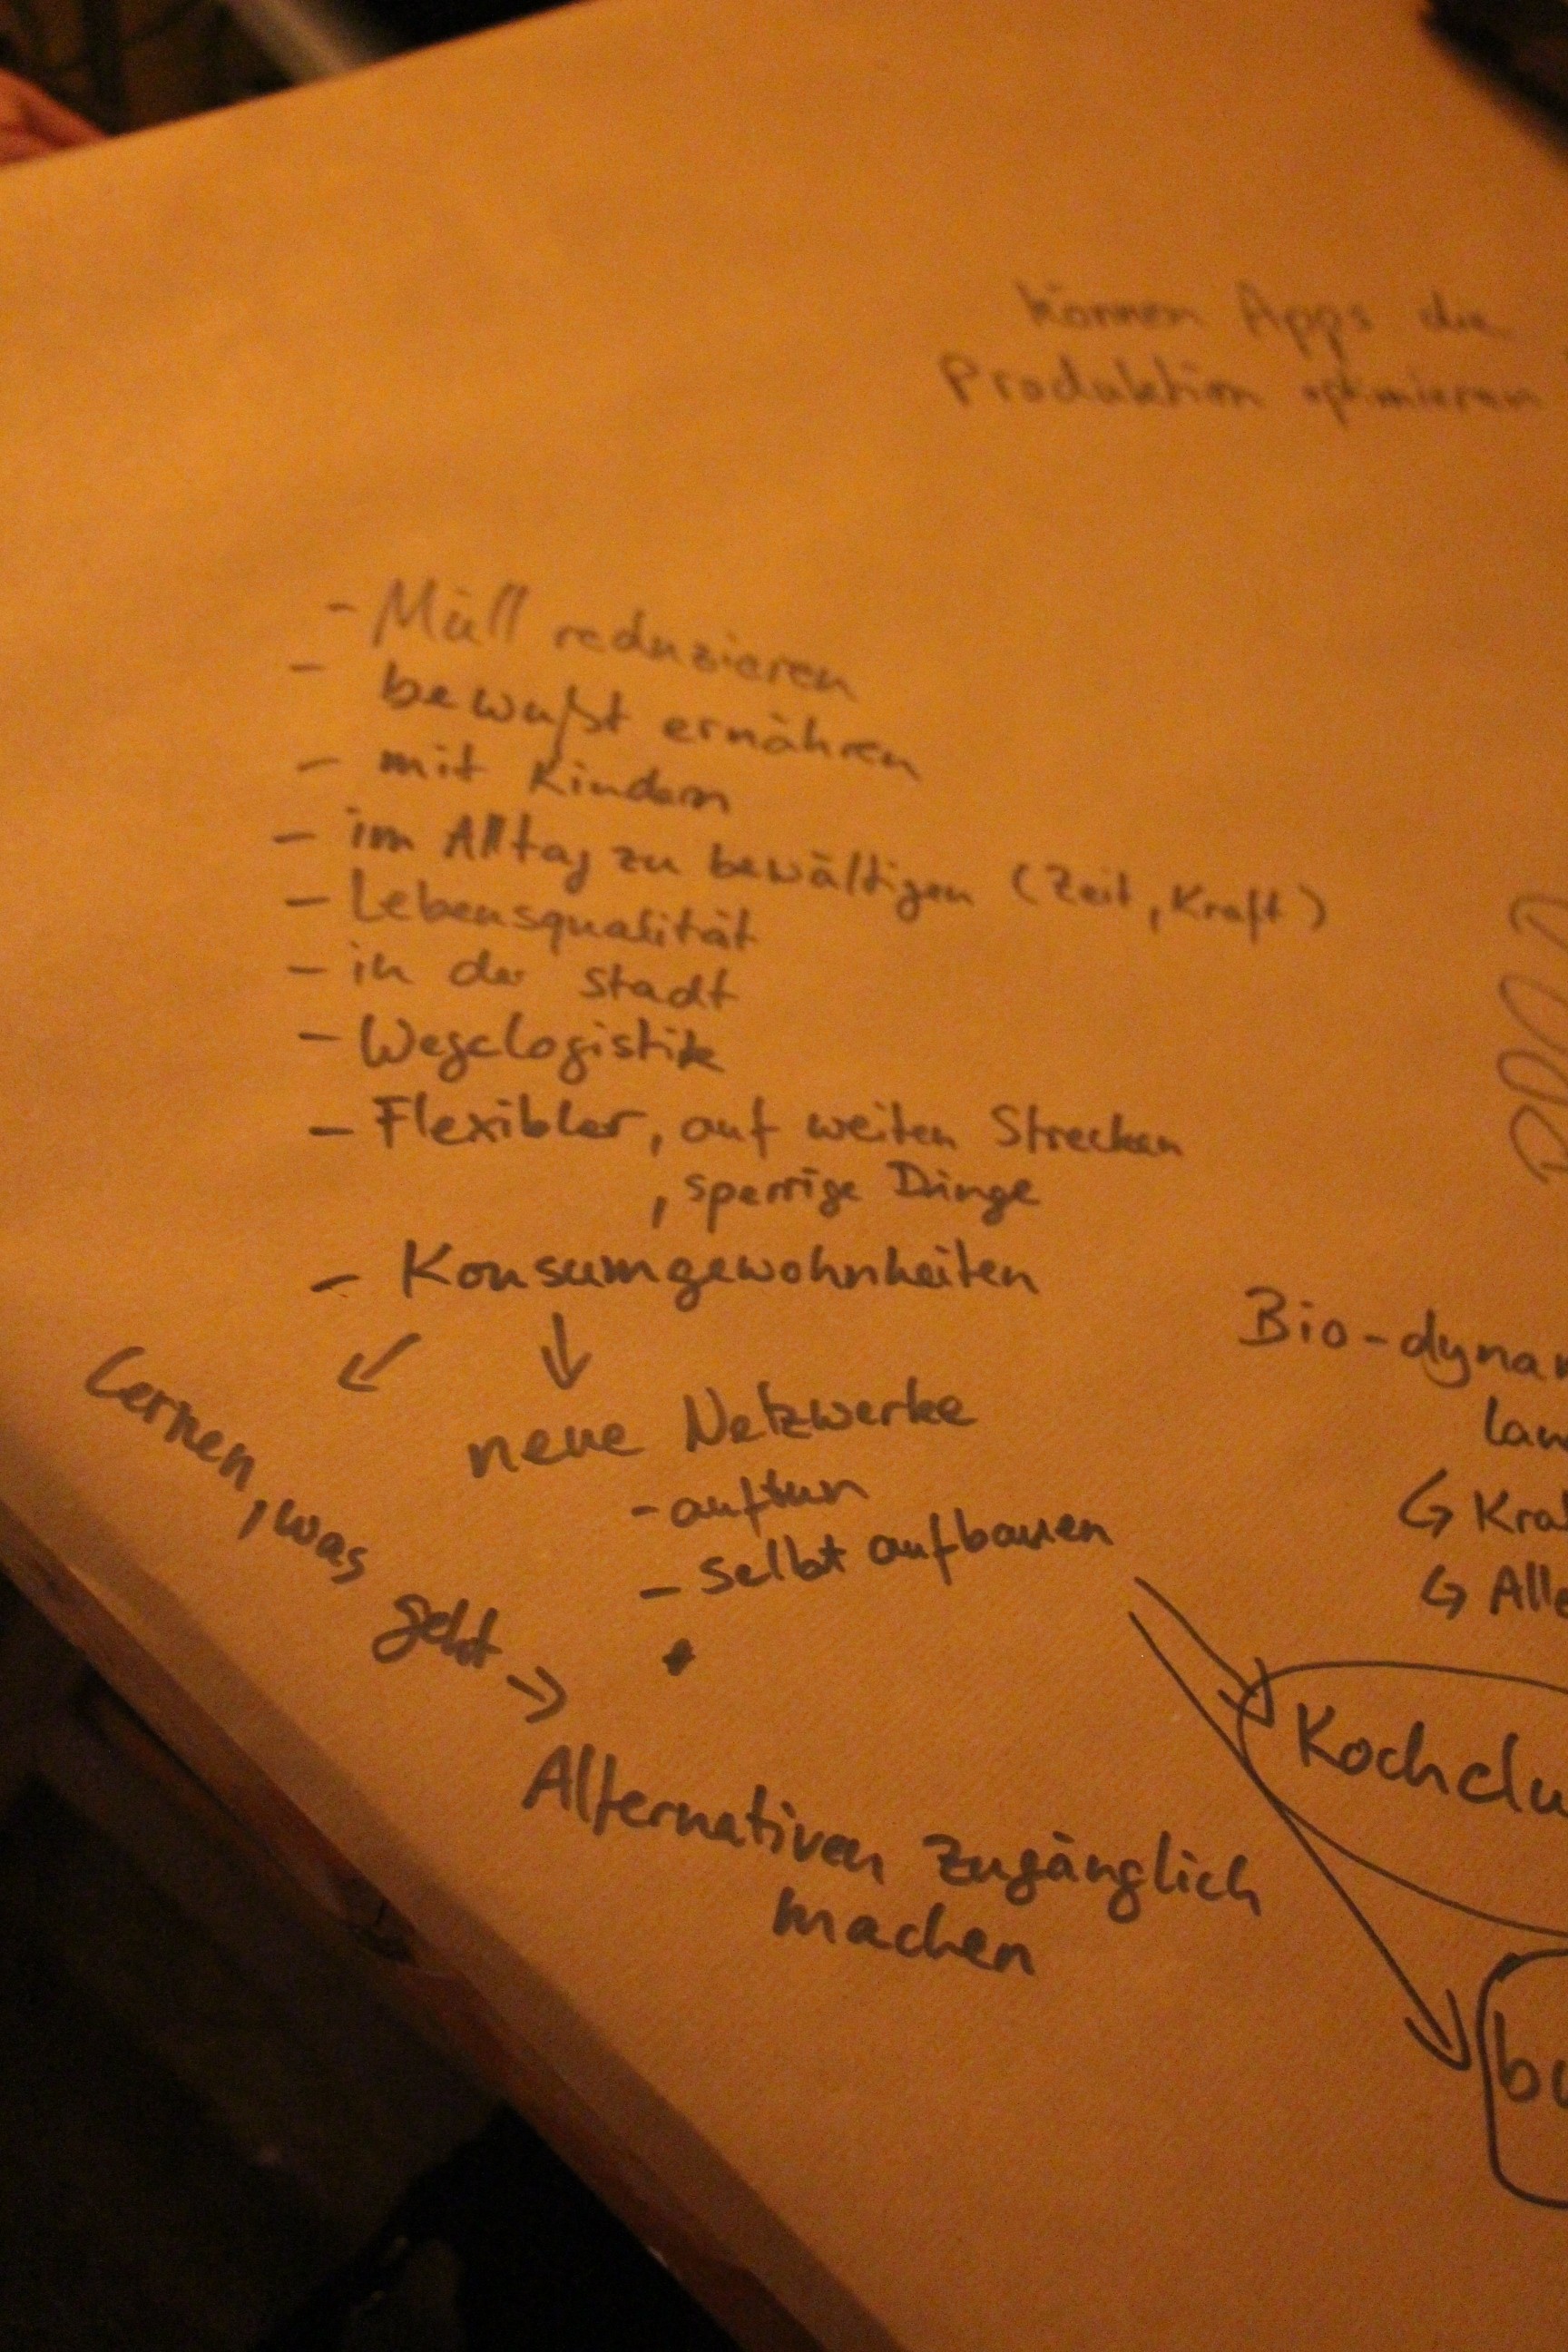 können Apps die
Produktion optimieren
- Müll reduzieren
- bewußt ernähren
- mit Kindern
- im Alltag zu bewältigen (Zeit, Kraft)
- Lebensqualität
- in der Stadt
- Wegelogistik
- Flexibler, auf weiten Strecken
, sperrige Dinge
- Konsumgewohnheiten
↙ ↓
Lernen, was geht →
neue Netzwerke
- auftun
- selbst aufbauen
Alternativen zugänglich
machen
Bio-dynam
lan
↳ Kra
↳ Alle
Kochclu